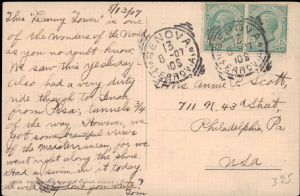 5/13/07
This "Leaning Tower" is one
of the Wonders of the World
as you no doubt know.
We saw this yesterday -
Also had a very dirty
ride though to Genoa
from Pisa; tunnels 3/4
of the way. However, we
got some beautiful views
of the Mediterranean, for we
went right along the shore.
Had a swim in it today
GENOVA
13
5-07
10S
FERROVIA
Miss Annie P. Scott,
711 N. 43rd Street,
Philadelphia Pa.
USA
325